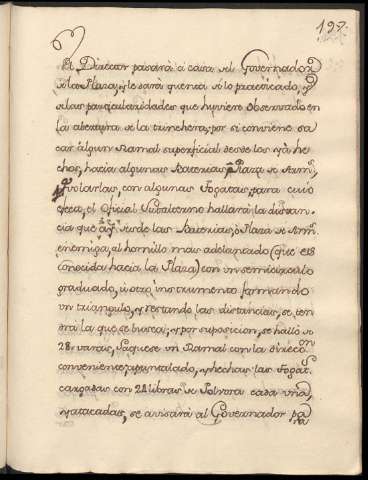 197.
El Director passará á casa del Governador
de la Plaza, y le dará quenta de lo practicado, y
de las particularidades que huviere observado en
la abertura de la trinchera, por si conviene sa
car algun Ramal superficial desde los yá he
chos, hacia algunas Baterias, ó Plaza de Arm.s
y volarlas, con algunas Fogatas, para cuio
efecto, el Oficial Subalterno hallará la distan-
cia que ay desde las Baterias, ó Plaza de Arm.s
enemiga, al hornillo mas adelantado (que es
conocida hacia la Plaza) con un semicirculo
graduado, ú otro instrumento formando
un triangulo, y restando las distancias, se ten
drá la que se busca; y por suposicion, se halló de
28. varas, saquese un Ramal con la direccion
conveniente apuntalado, y hechas las Fogat.s
cargadas con 22 libras de Polvora cada una,
y atacadas, se avisará al Governador para